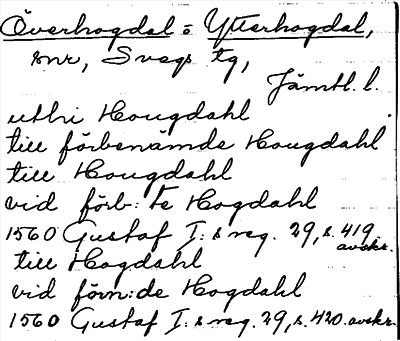 Överhogdal o Ytterhogdal,
snr, Svegs tg,
Jämtl. l.
uthi Hougdahl
till förbenämde Hougdahl
till Hougdahl
vid förb:te Hogdahl
1560 Gustaf I:s reg. 29, s. 419
avskr.
till Hogdahl
vid förn:de Hogdahl
1560 Gustaf I:s reg. 29, s. 420. avskr.